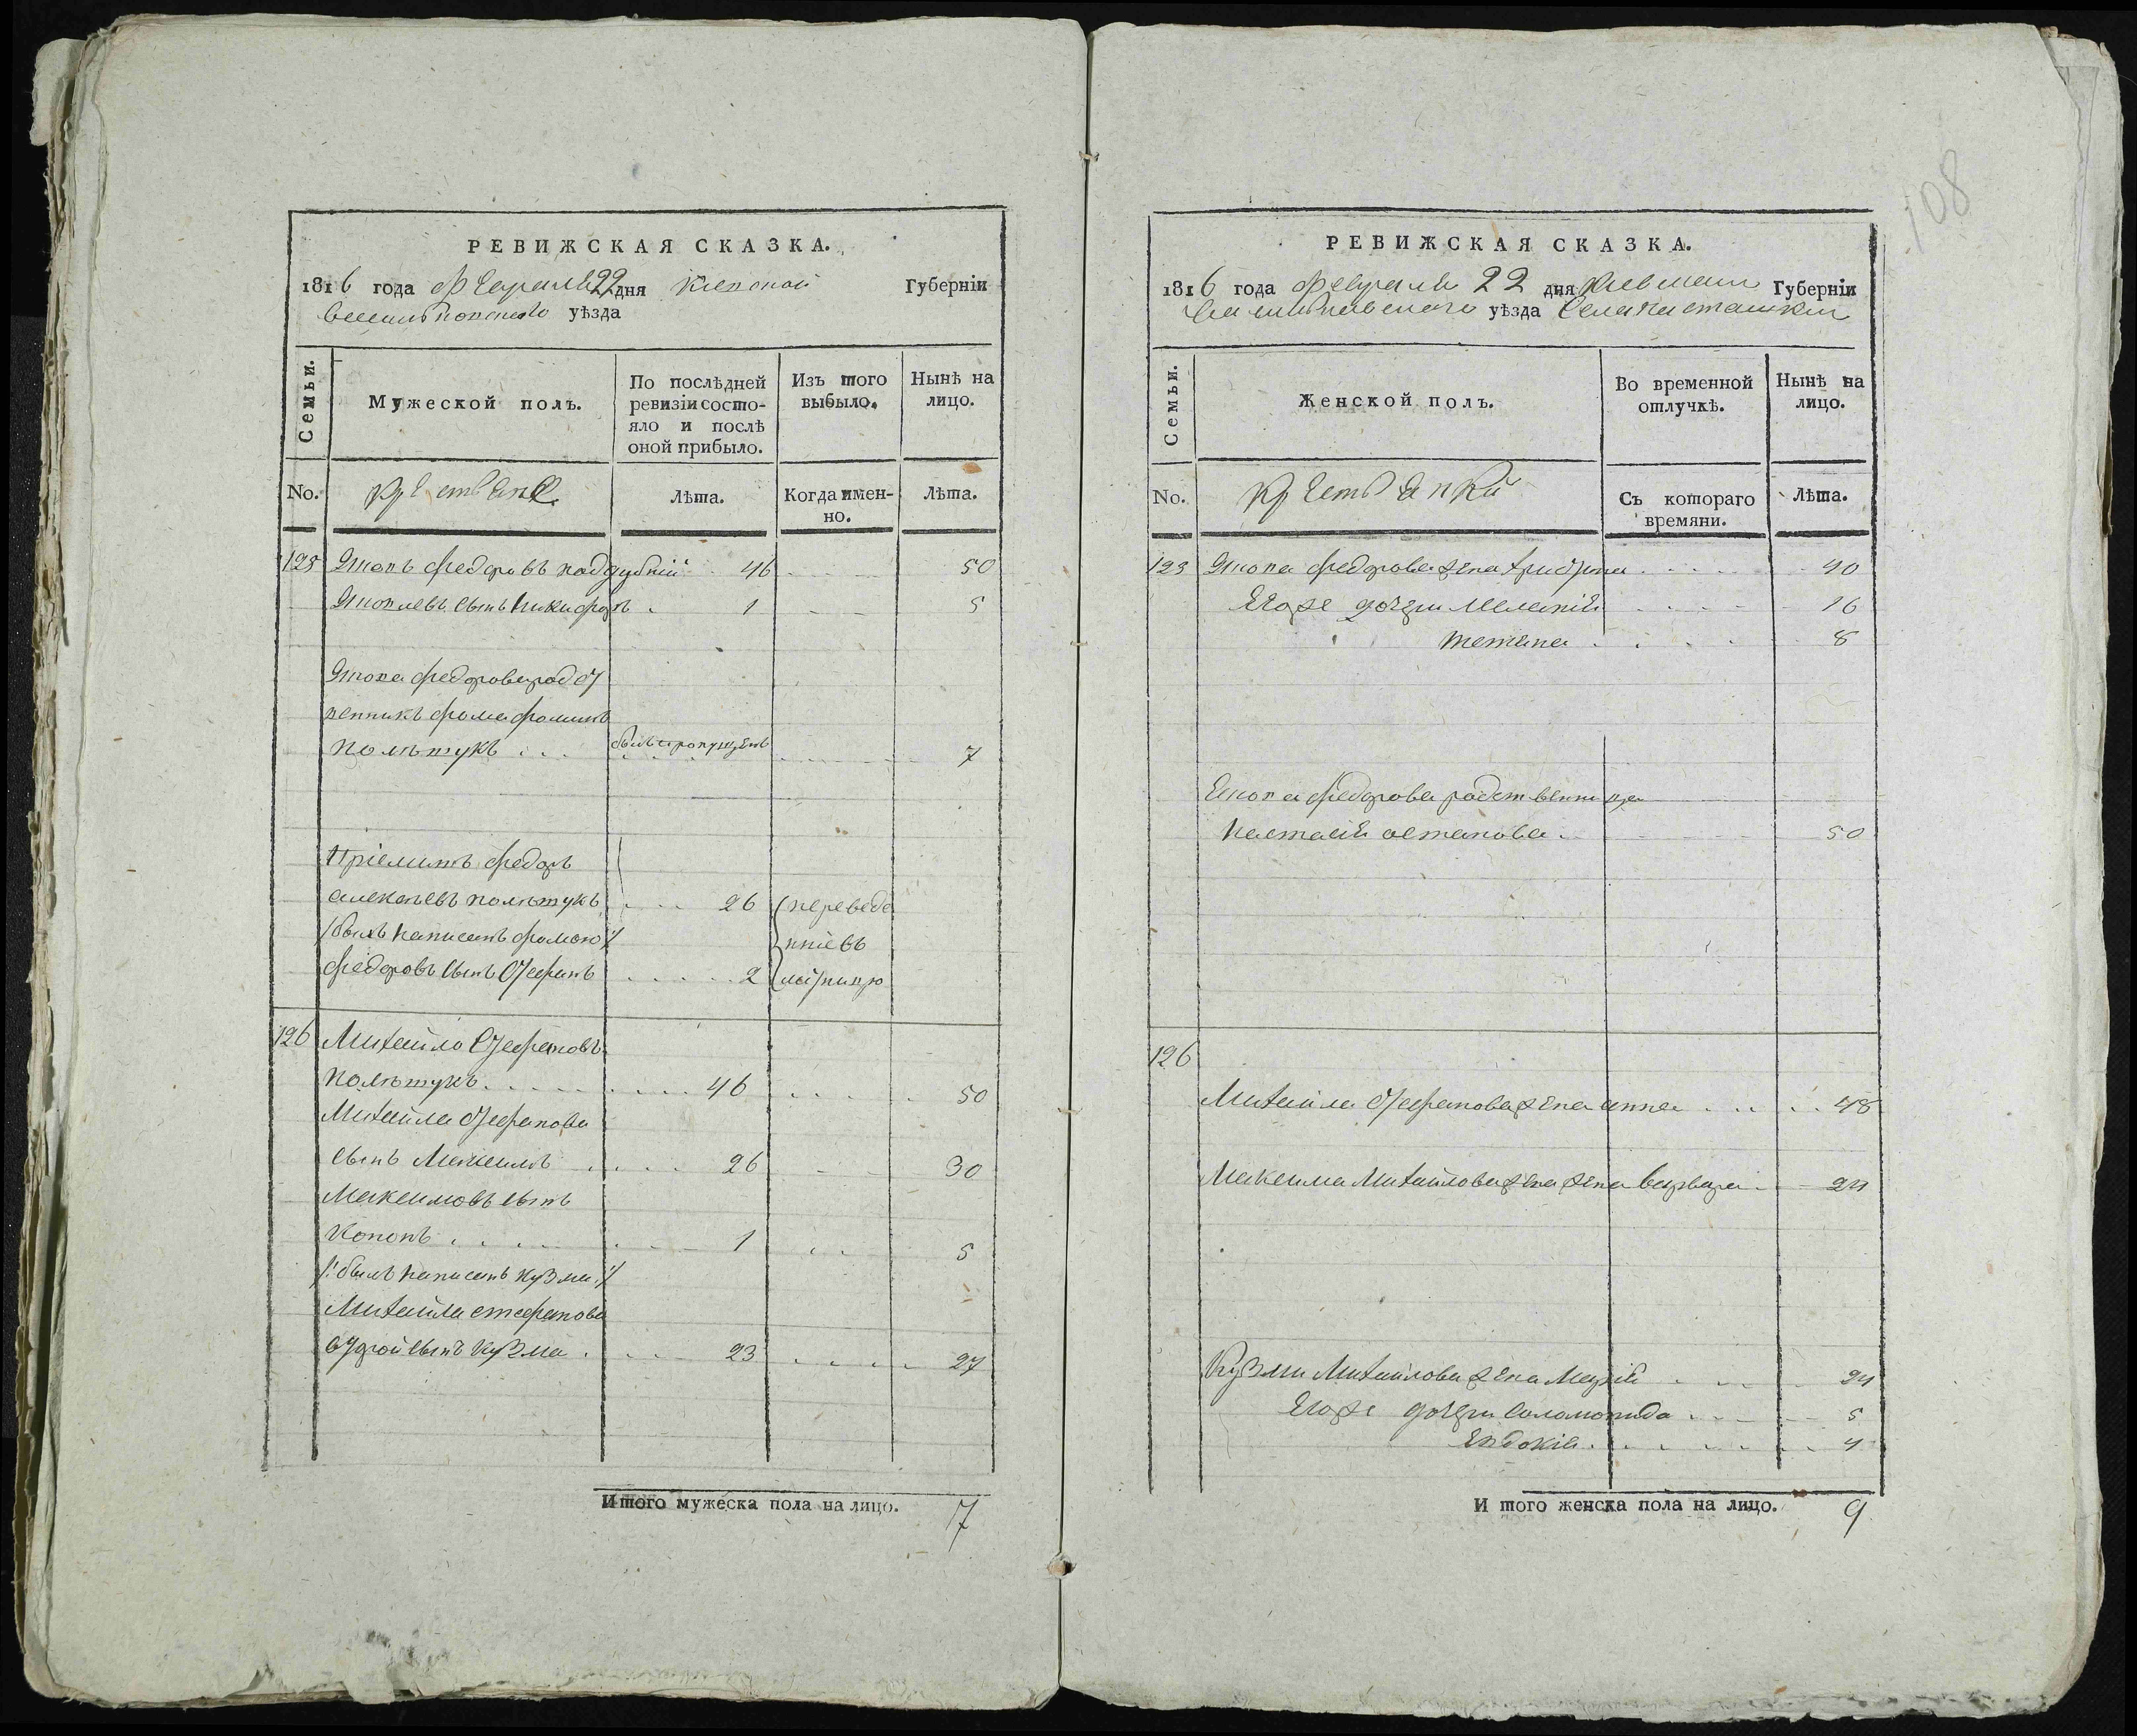 РЕВИЖСКАЯ СКАЗКА.
1816 года февраля 22 дня Киевской Губерніи
Васильковского уѣзда
Семьи.
Мужеской полъ.
По послѣдней ревизіи состояло и послѣ оной прибыло.
Изъ того выбыло.
Нынѣ на лицо.
No.
крестьяне
Лѣта.
Когда имянно.
Лѣта.
125 Федоровъ поддубній 46 50
сынъ Никифоръ 1 5
Федорова родст
венникъ фома фоминъ
полѣтукъ былъ пропущенъ 7
Пріемышъ федоръ
алексѣевъ полѣтукъ 26 переведе
/:былъ написанъ фомою:/ нніевъ
федоровъ сынъ Стефанъ 2
126 Михайло Стефановъ
полѣтукъ 46 50
Михайла Стефанова
сынъ Максимъ 26 30
Максимовъ сынъ
Кононъ 1 5
/:былъ написанъ Кузма:/
Михайла стефанова
второй сынъ Кузма 23 27
Итого мужеска пола на лицо. 7
108
РЕВИЖСКАЯ СКАЗКА.
1816 года февраля 22 дня Киевской Губерніи
Васильковского уѣзда Села
Семьи.
Женской полъ.
Во временной отлучкѣ.
Нынѣ на лицо.
No.
крестьянки
Съ котораго времяни.
Лѣта.
125 Федорова жена 40
Егоже дочери Меланія 16
Татяна 8
Федорова родственница
настасія остапова 50
126
Михайла Стефанова жена анна 48
Максима Михайлова жена жена варвара 24
Кузми Михайлова жена Марія 24
Егоже дочери Соломонида 5
Евдокія 4
Итого женска пола на лицо. 9